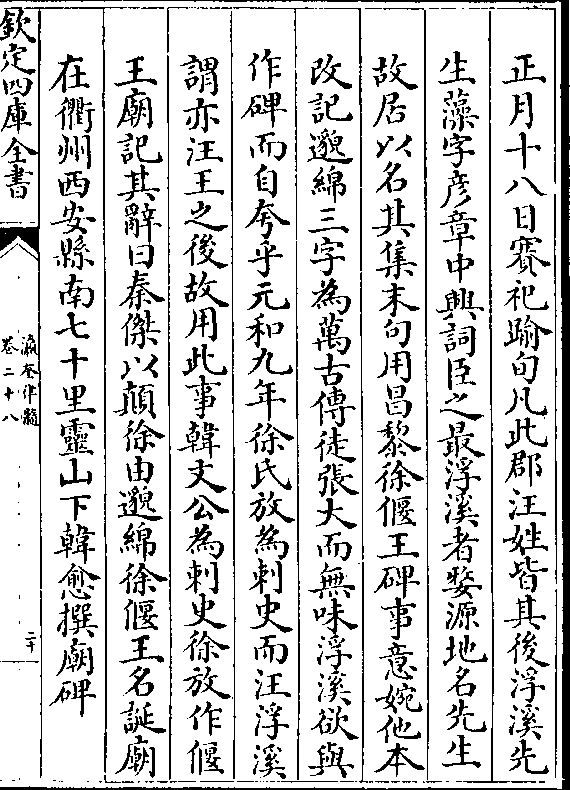 正月十八日賽祀踰旬凡此郡汪姓皆其後浮溪先
生藻字彦章中興詞臣之最浮溪者婺源地名先生
故居以名其集末句用昌黎徐偃王碑事意婉他本
改記邈綿三字為萬古傳徒張大而無味浮溪欲與
作碑而自夸乎元和九年徐氏放為刺史而汪浮溪
謂亦汪王之後故用此事韓文公為刺史徐放作偃
王廟記其辭曰秦傑以顛徐由邈綿徐偃王名誕廟
在衢州西安縣南七十里靈山下韓愈撰廟碑
欽定四庫全書
瀛奎律髓
卷二十八
二十